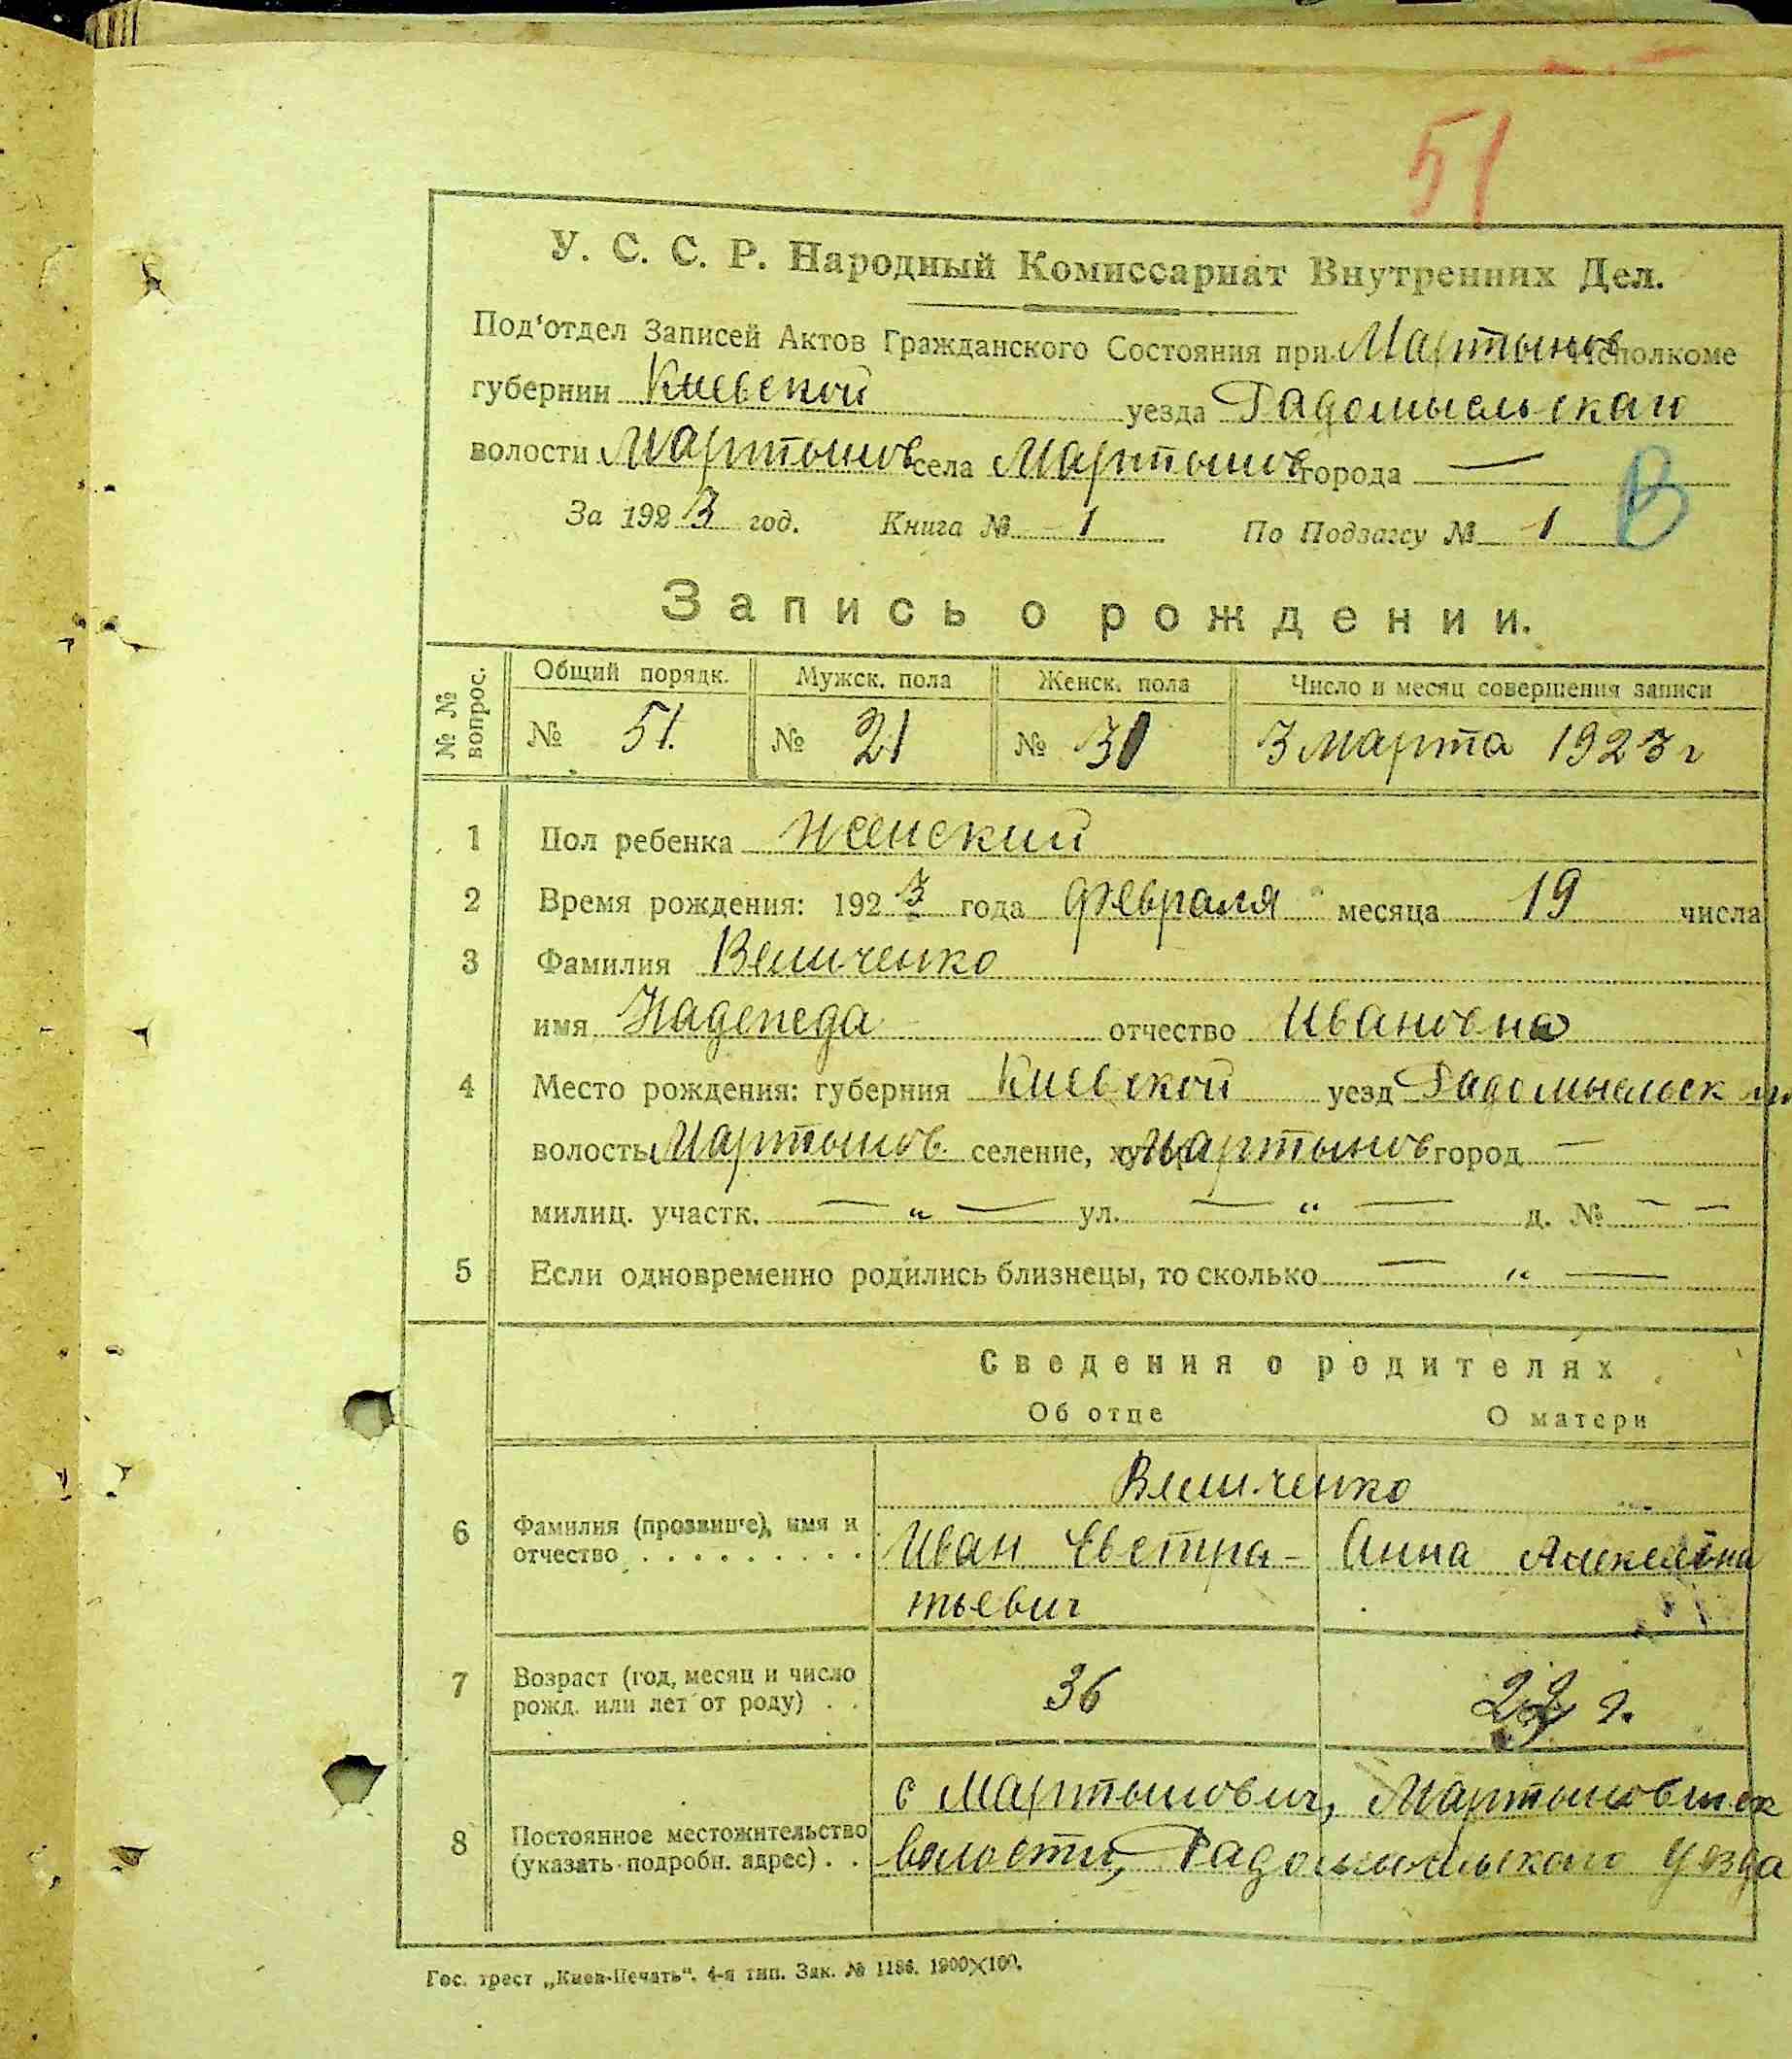 51
У. С. С. Р. Народный Комиссариат Внутренних Дел.
Под'отдел Записей Актов Гражданского Состояния при Мартынов исполкоме
губернии Киевской уезда Радомысльскаго
волости Мартынов села Мартынов города —
В
За 1923 год. Книга № 1 По Подзагсу № 1
Запись о рождении.
№ № вопрос.
Общий порядк. Мужск. пола Женск. пола Число и месяц совершения записи
№ 51. № 21 № 30 3 марта 1923 г
1 Пол ребенка женский
2 Время рождения: 1923 года февраля месяца 19 числа
3 Фамилия Величенко
имя Надежда отчество Ивановна
4 Место рождения: губерния Киевской уезд Радомысльск
волость Мартынов. селение, Мартынов город —
милиц. участк. — „ — ул. — „ — д. № — —
5 Если одновременно родились близнецы, то сколько — „ —
Сведения о родителях
Об отце О матери
Величенко
6 Фамилия (прозвище), имя и
отчество . . . . . . . . . .
Иван Евстра- Анна
тьевич
7 Возраст (год, месяц и число
рожд. или лет от роду) . .
36 г.
8 Постоянное местожительство
(указать подробн. адрес) . .
с Мартынович, Мартыновишск
волости, Радомысльского уезда
Гос. трест „Киев-Печать". 4-я тип. Зак. № 1186. 1900✕100.